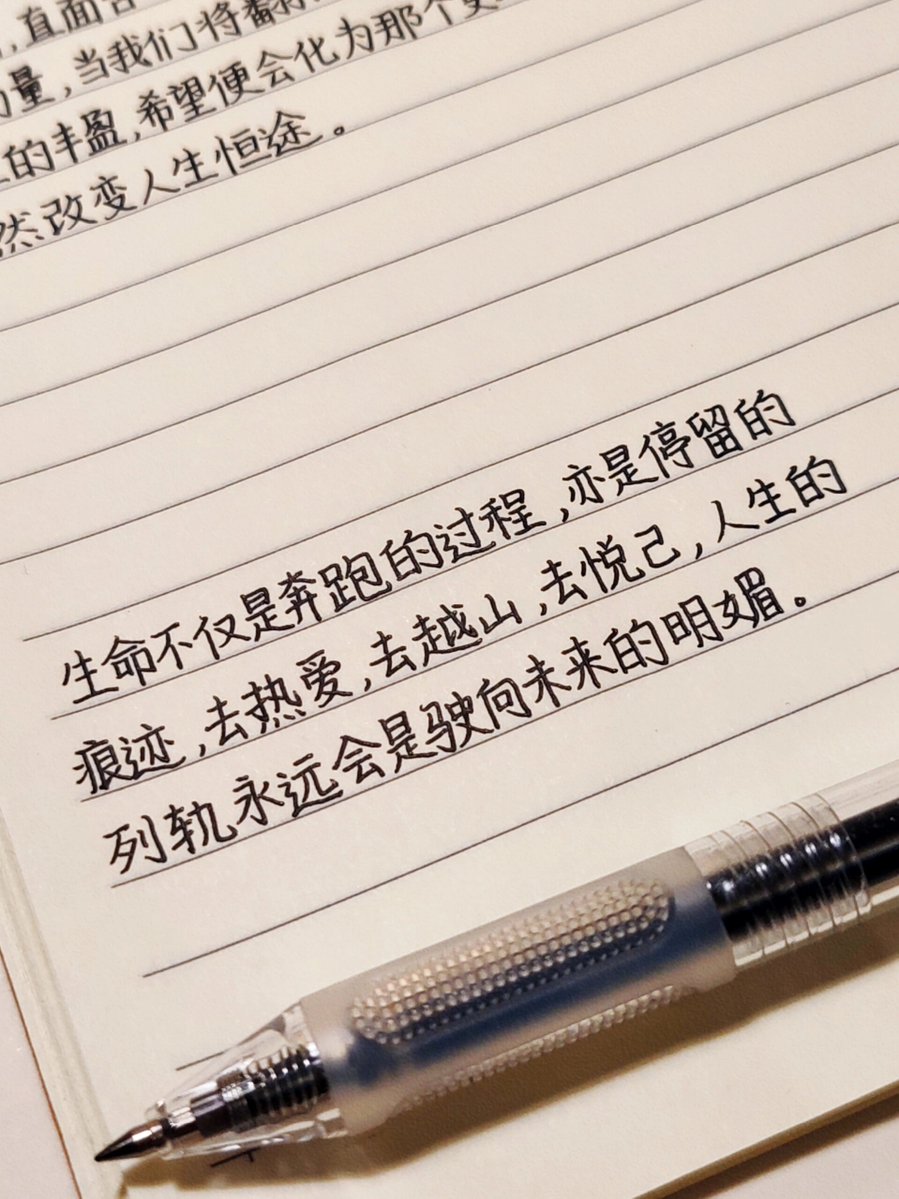 ,直面
量,当我们将翻
的丰盈,希望便会化为那个
然改变人生恒途。
生命不仅是奔跑的过程,亦是停留的
痕迹,去热爱,去越山,去悦己,人生的
列轨永远会是驶向未来的明媚。